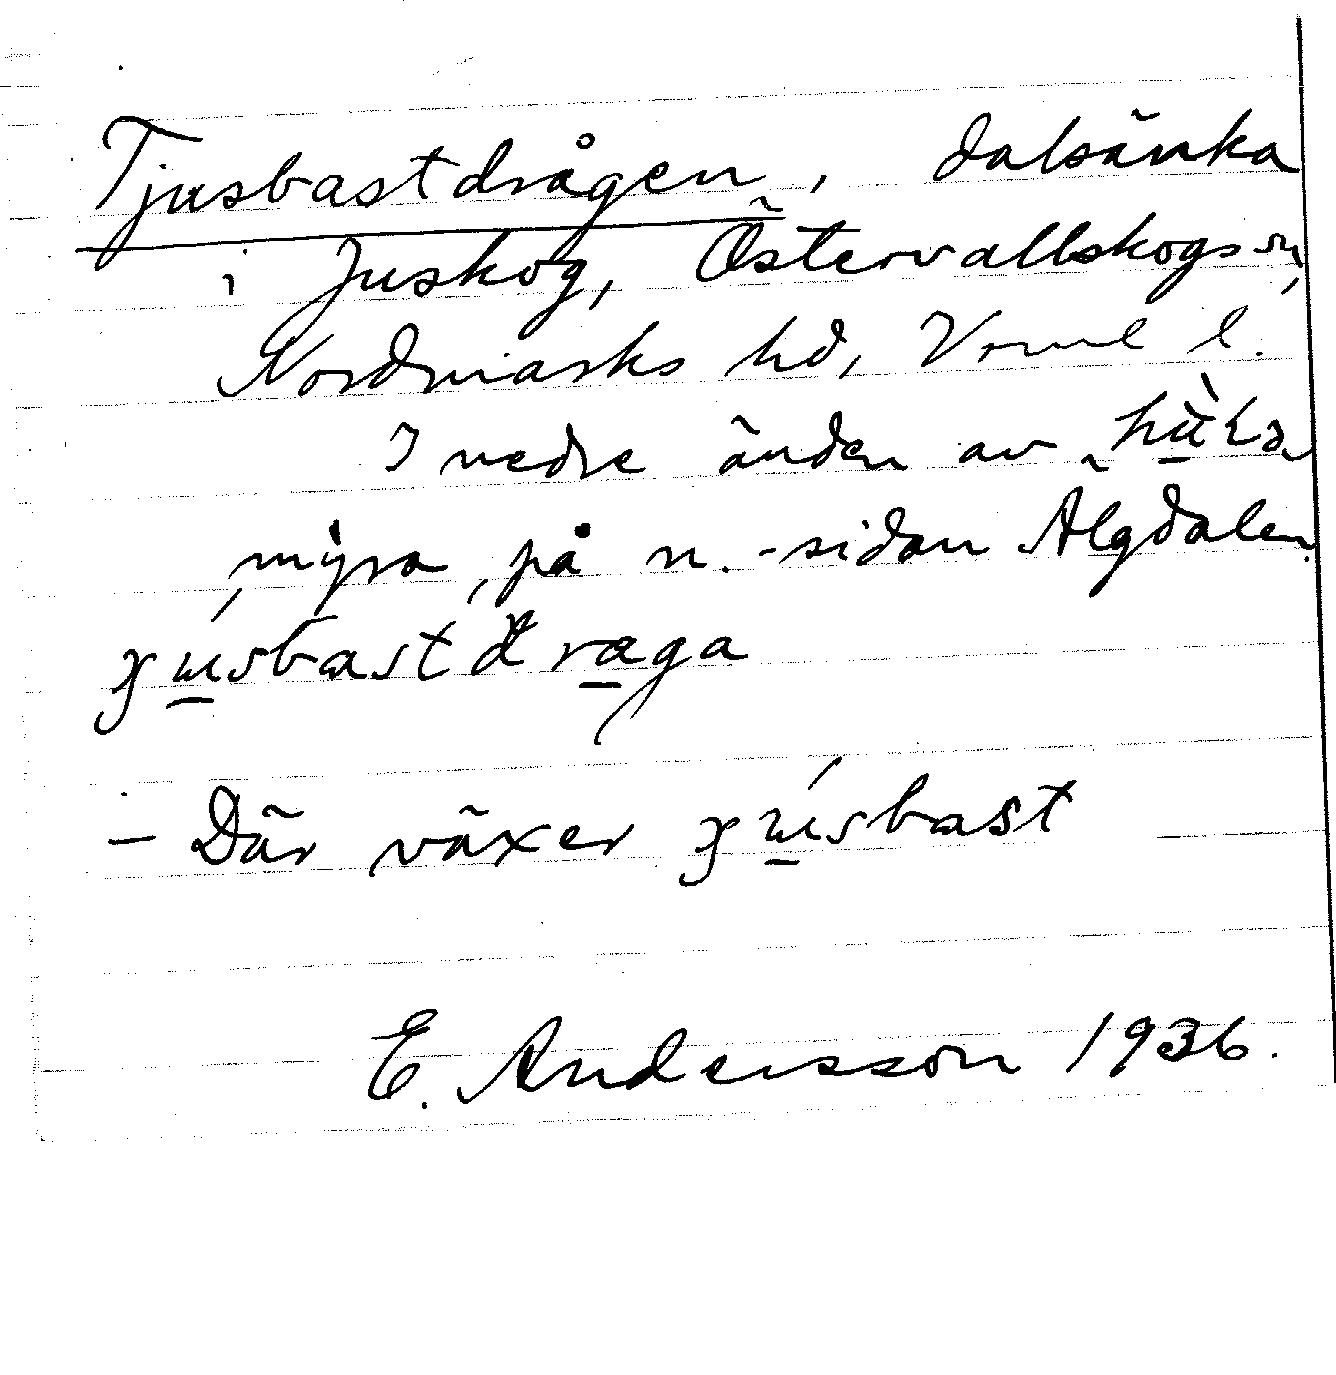 Tjusbastdrågen, dalsänka
i Juskog, Östervallskogs sn,
Nordmarks hd, Vrml l.
I nedre änden av
myra, på n.-sidan Älgdalen.

– Där växer
E. Andersson 1936.